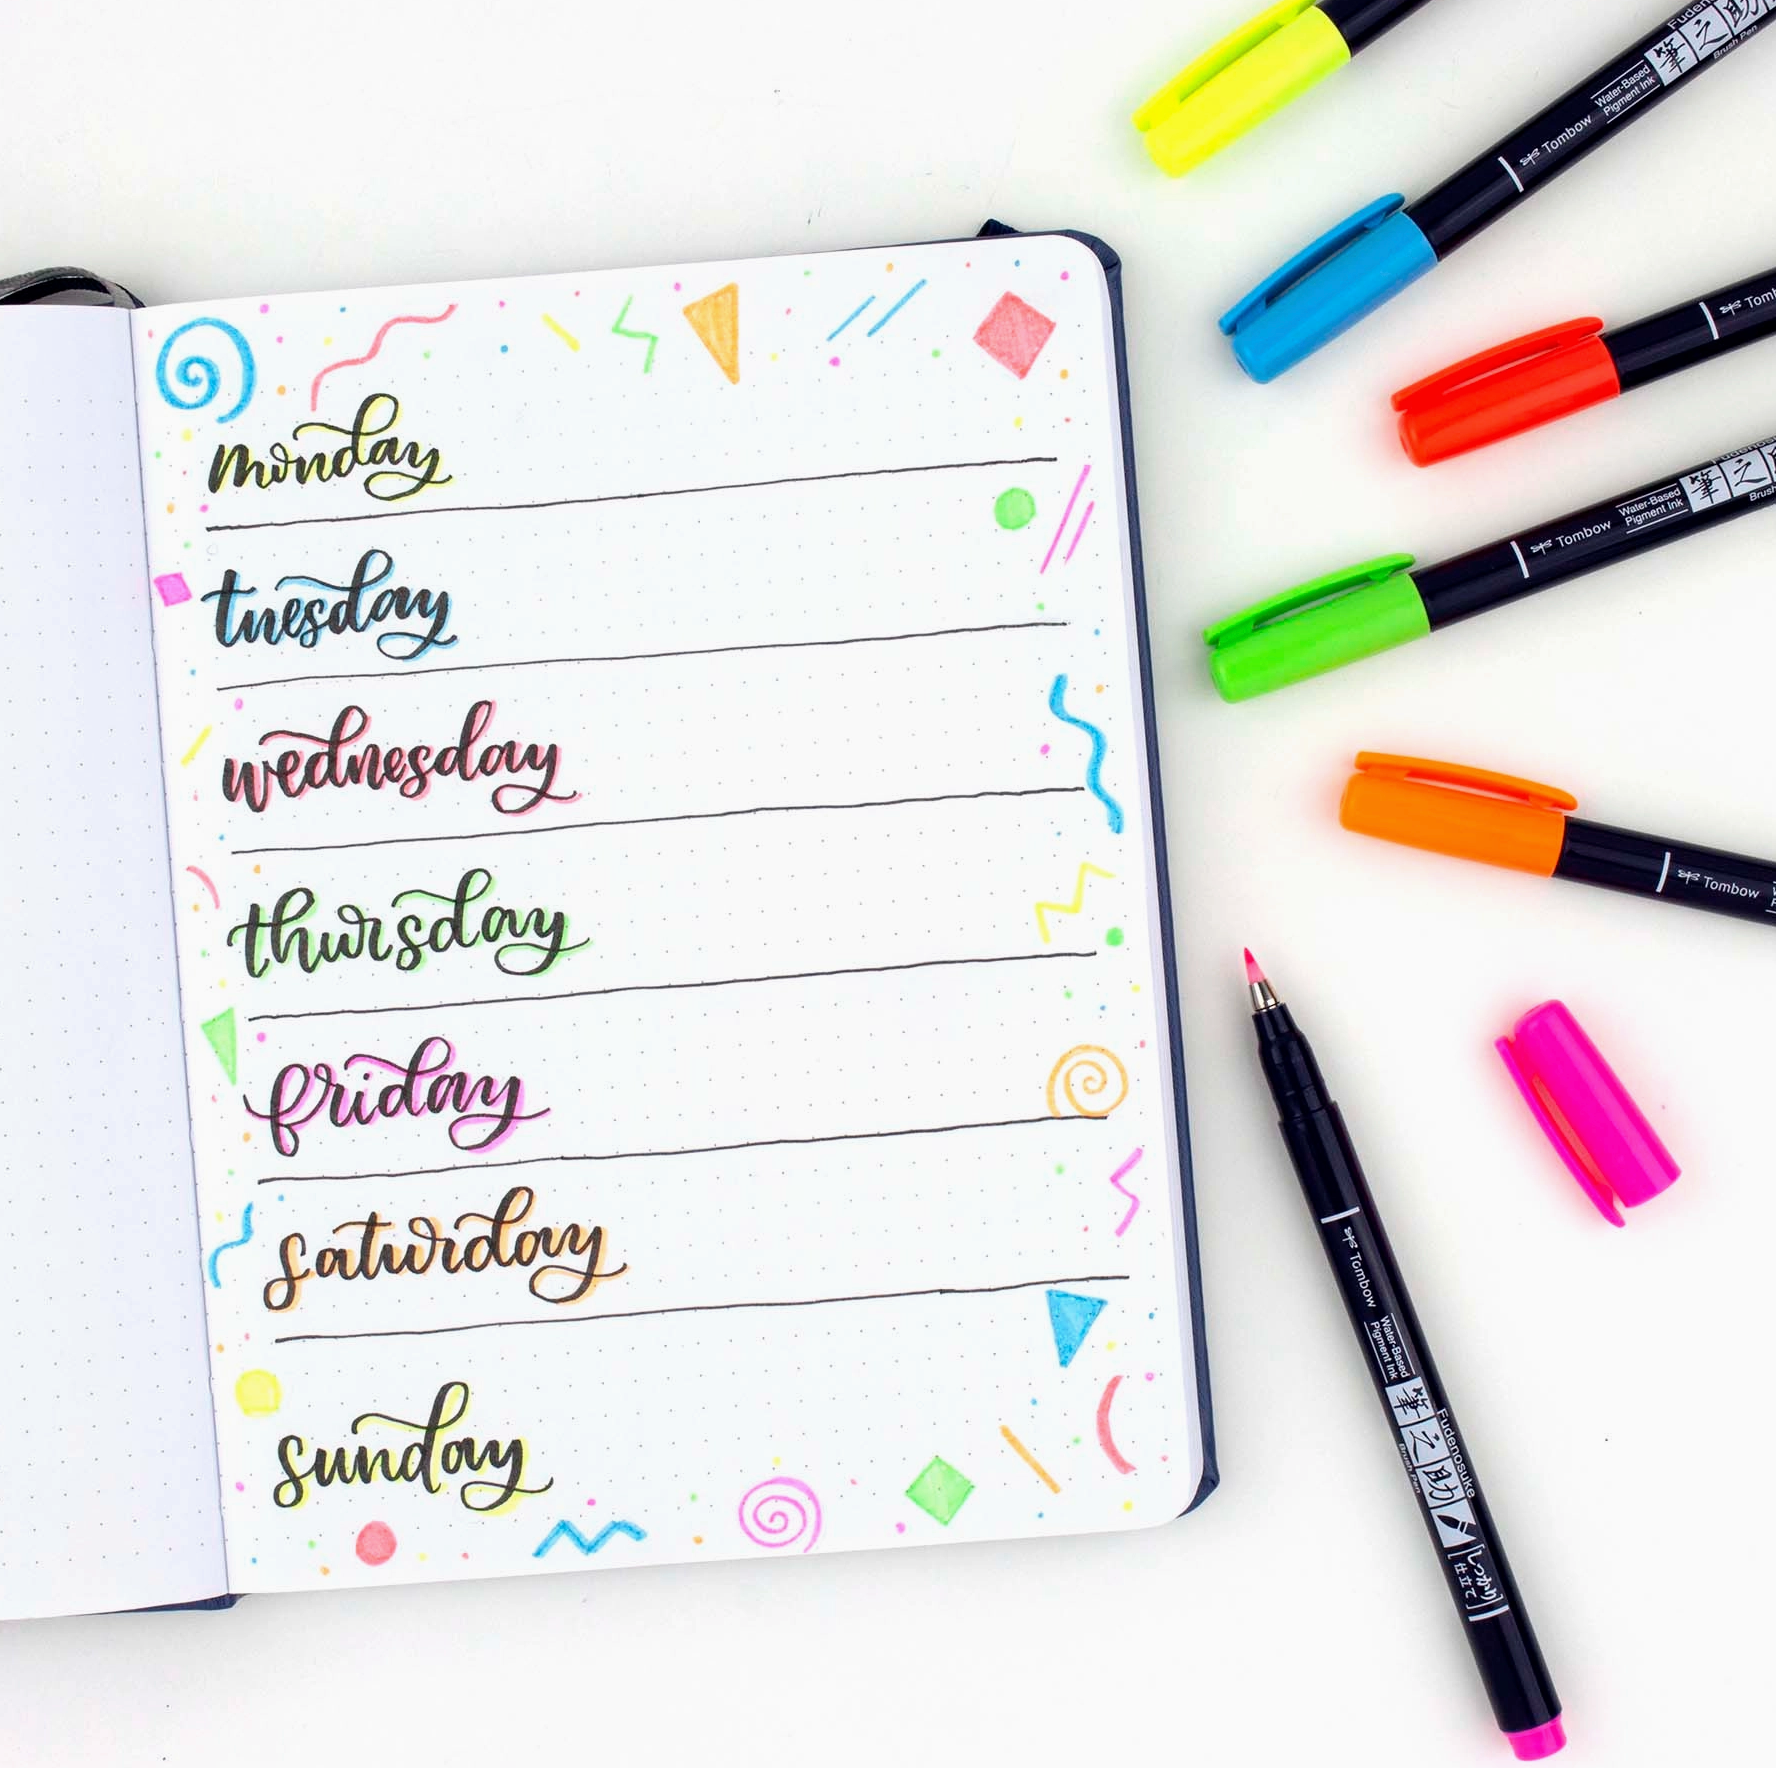 monday
tuesday
wednesday
thursday
friday
saturday
sunday
Tombow
Water-Based
Pigment Ink
筆之助
Brush Pen
Tombow
Tombow
Water-Based
Pigment Ink
筆之
Brush
Tombow
Tombow
Water-Based
Pigment Ink
筆之助
Fudenosuke
Brush Pen